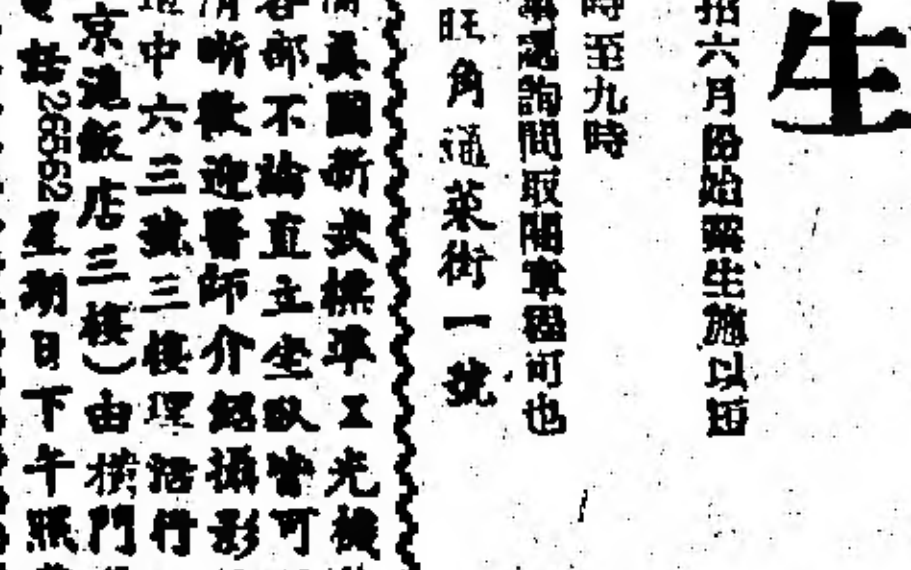 生
招六月份始業生施以短
時至九時
詢問取閱章程可也
旺角通菜街一號
美國新式標準X光機
部不論直立坐臥皆可
清晰歡迎醫師介紹攝影
中六三號三樓理活行
京滬飯店三樓)由橫門
電話26562星期日下午照